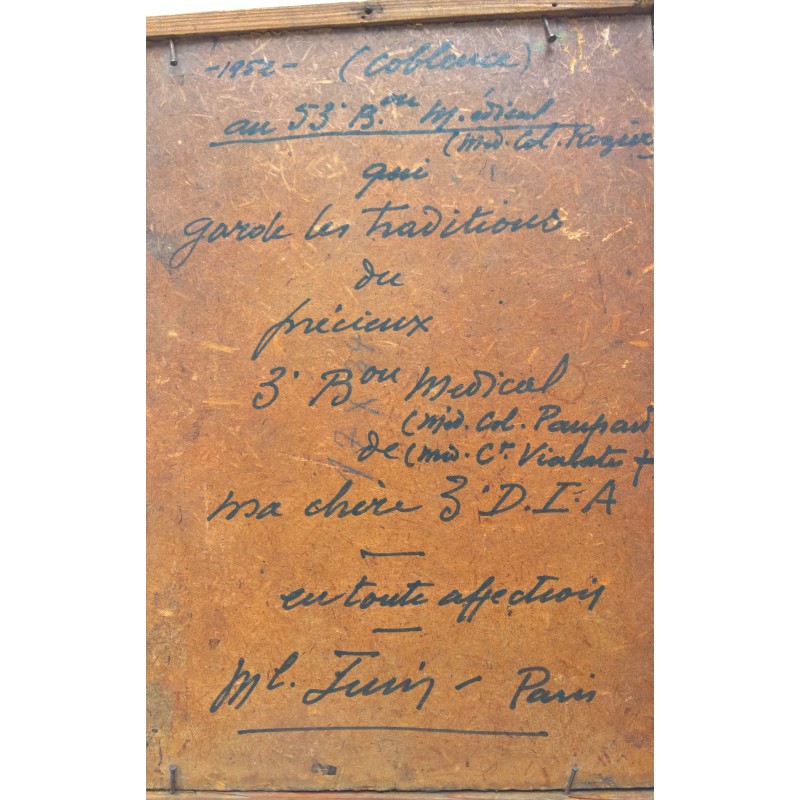 -1952- (Coblence)
au 53e Bon Médical
(méd. Col. Rozier
qui
garde les traditions
du
précieux
3e Bon Medical
(méd. Col. Paupard
de (méd. Ct Vialate +
ma chère 3e D.I.A
en toute affection
Ml. Juin - Paris